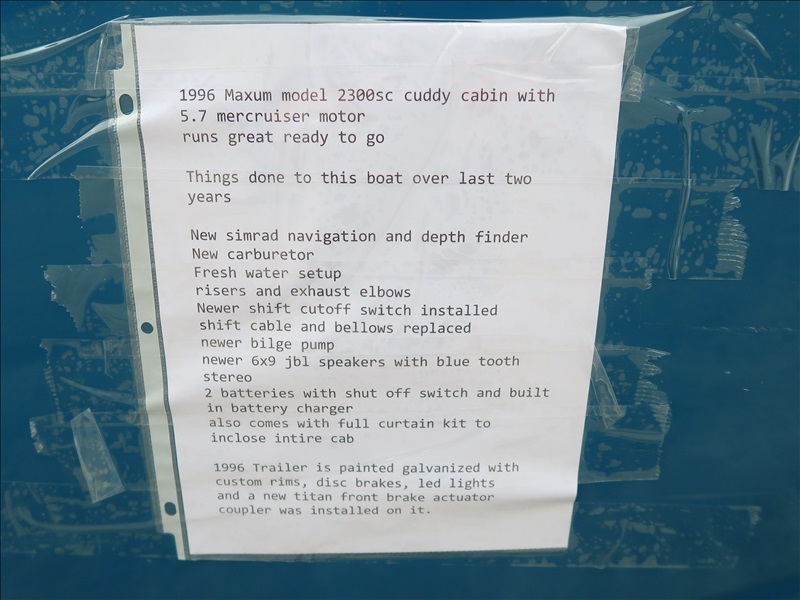 1996 Maxum model 2300sc cuddy cabin with
5.7 mercruiser motor
runs great ready to go
Things done to this boat over last two
years
New simrad navigation and depth finder
New carburetor
Fresh water setup
risers and exhaust elbows
Newer shift cutoff switch installed
shift cable and bellows replaced
newer bilge pump
newer 6x9 jbl speakers with blue tooth
stereo
2 batteries with shut off switch and built
in battery charger
also comes with full curtain kit to
inclose intire cab
1996 Trailer is painted galvanized with
custom rims, disc brakes, led lights
and a new titan front brake actuator
coupler was installed on it.